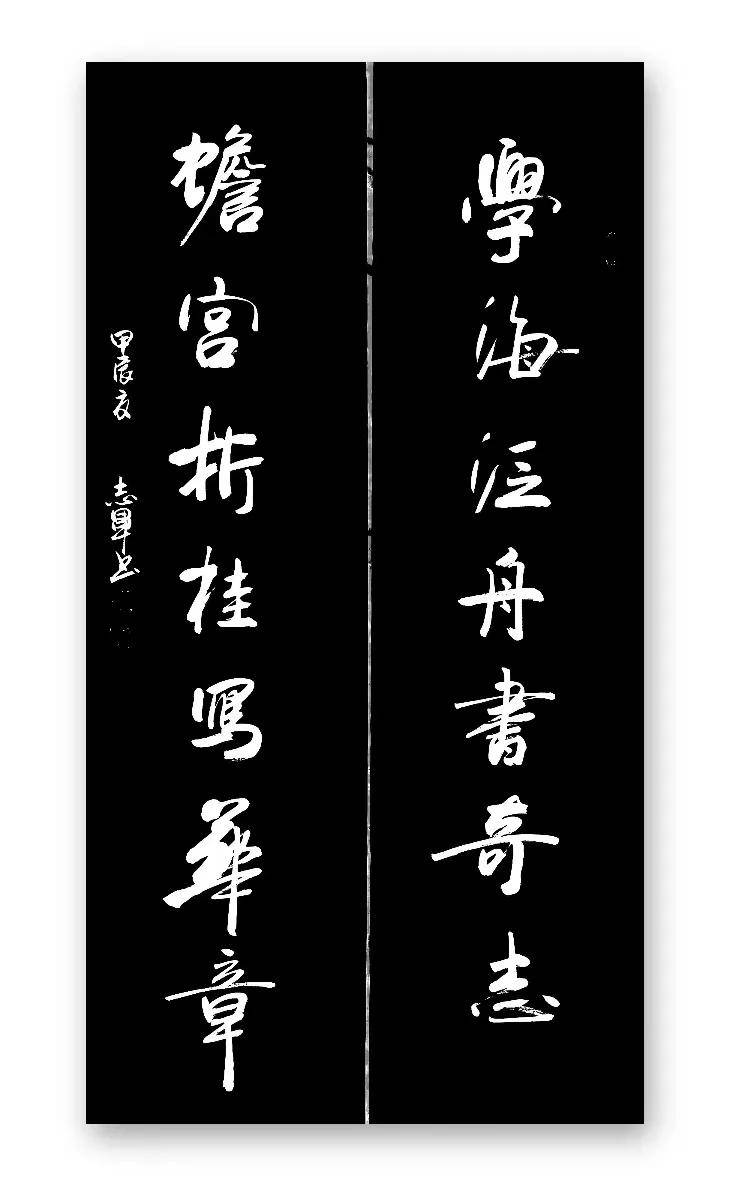 學海泛舟書奇志
蟾宮折桂寫華章
甲辰夏
志軍書